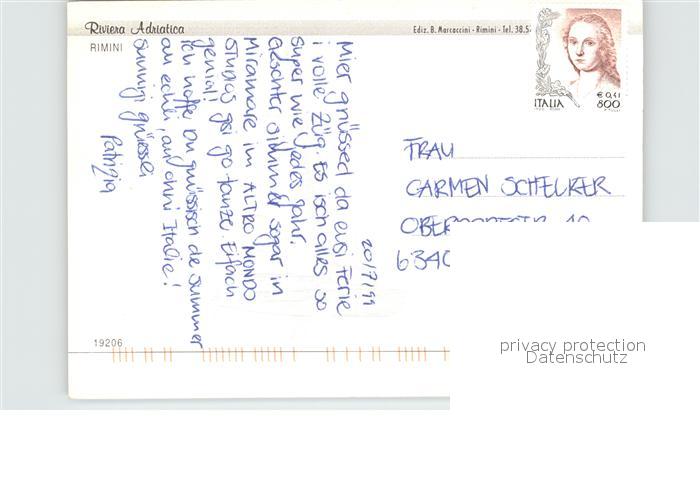 Riviera Adriatica
RIMINI
Ediz. B. Marcaccini - Rimini - Tel. 38.5
20/7/99
Mier gnüssed da eusi Ferie
i volle Züg. Es isch alles so
super wie jedes Jahr.
Geschter simmer sogar in
Miramare im ALTRO MONDO
STUDIOS gsi go tanze. Eifach
genial!
Ich hoffe Du gnüssisch de Summer
au echli, au ohni Italie!
Sunnigi grüessli
Patrizia
€ 0,41
ITALIA 800
FRAU
CARMEN SCHEURER
6340
19206
privacy protection
Datenschutz